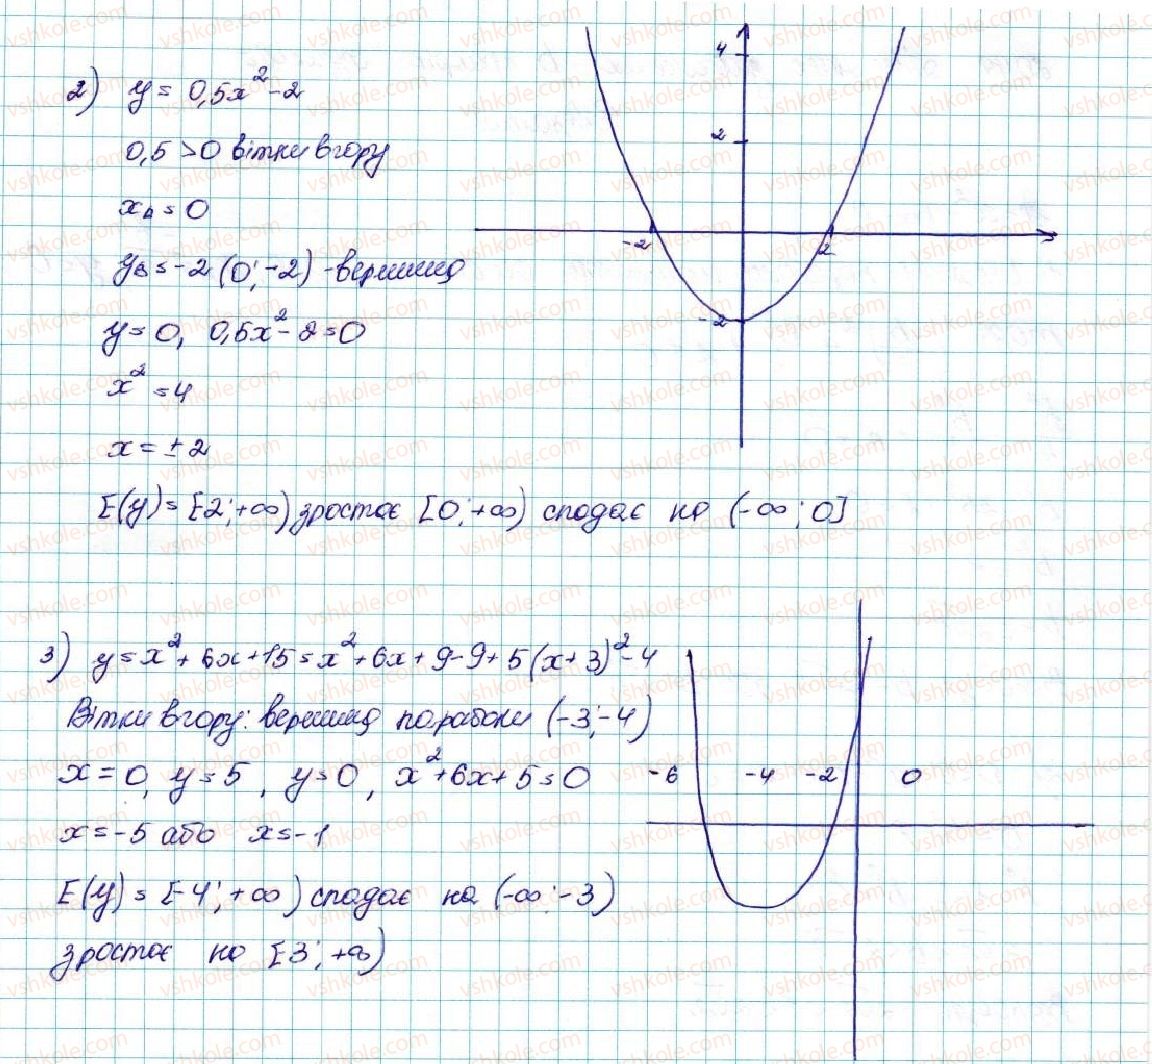 2) y = 0,5x² - 2
0,5 > 0 вітки вгору
xв = 0
yв = -2 (0; -2) - вершина
y = 0, 0,5x² - 2 = 0
x² = 4
x = ± 2
E(y) = [2; +∞) зростає [0; +∞) спадає на (-∞; 0]
4
2
-2 2
-2
3) y = x² + 6x + 15 = x² + 6x + 9 - 9 + 5 (x + 3)² - 4
Вітки вгору: вершина параболи (-3; -4)
x = 0, y = 5, y = 0, x² + 6x + 5 = 0
x = -5 або x = -1
E(y) = [-4; +∞) спадає на (-∞; -3)
зростає на [3; +∞)
-6 -4 -2 0
vshkole.com